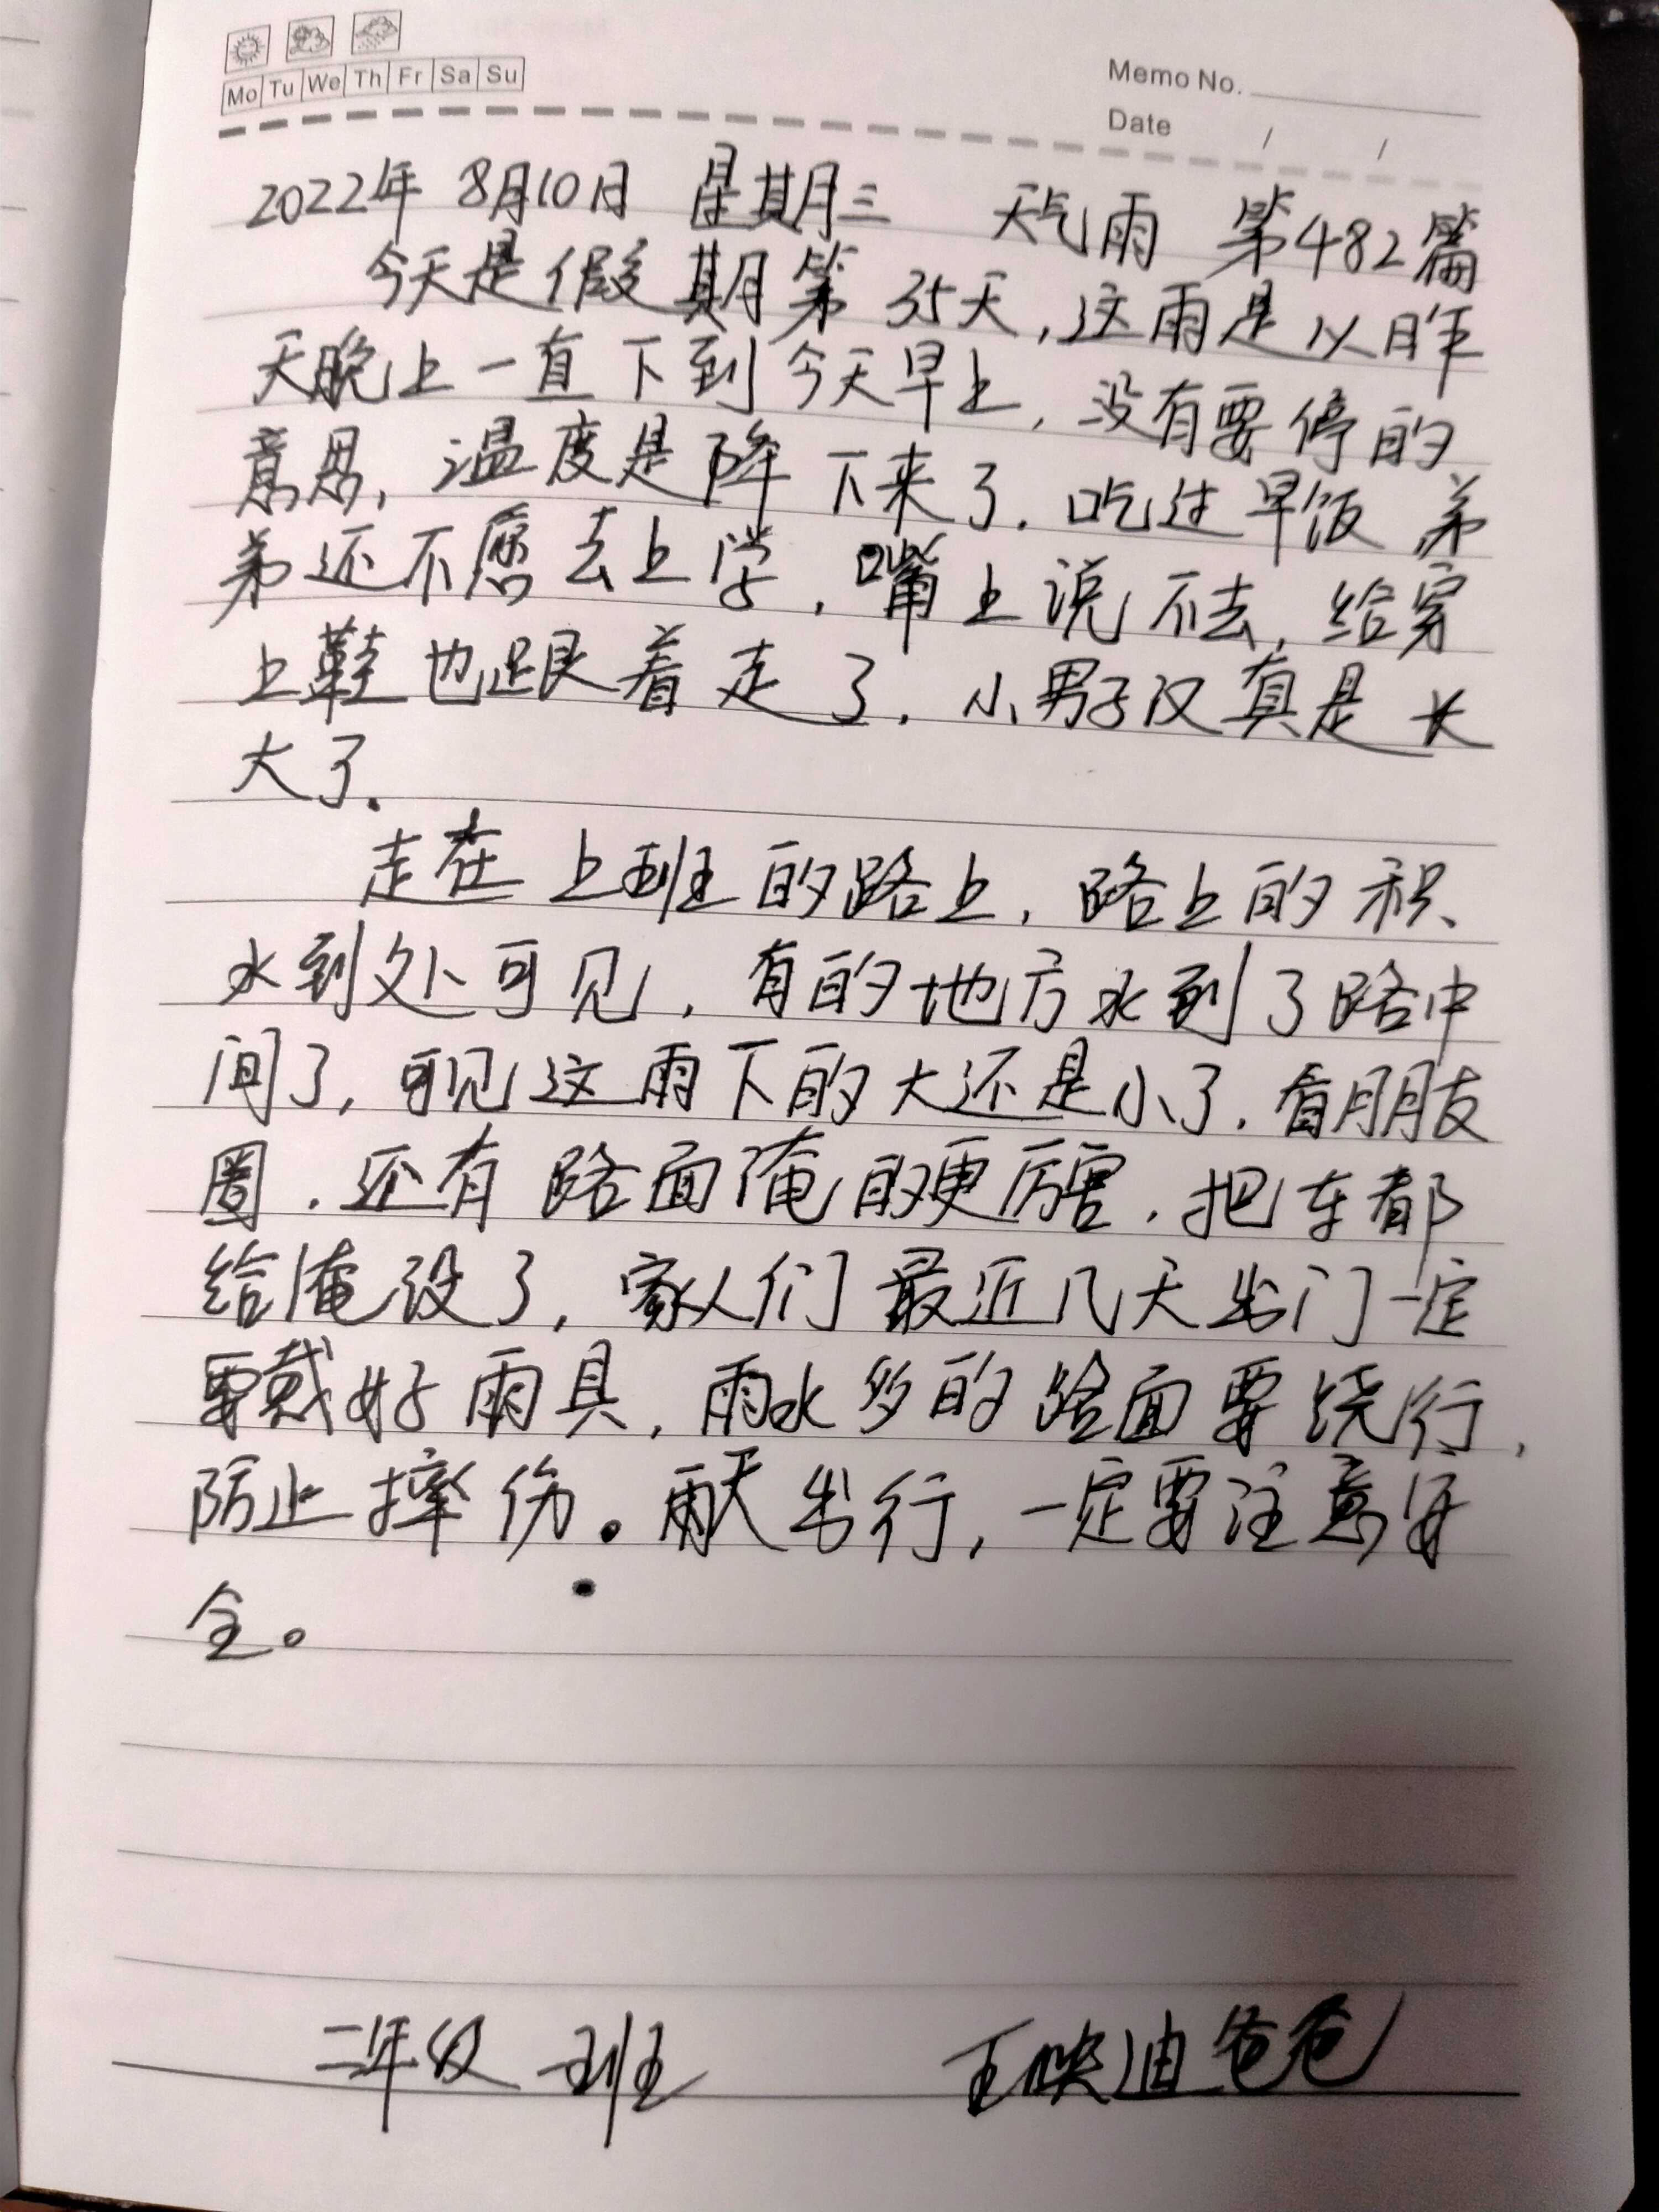 Mo Tu We Th Fr Sa Su
Memo No.
Date / /
2022年 8月10日 星期三 天气雨 第482篇
今天是假期第35天,这雨是从昨
天晚上一直下到今天早上,没有要停的
意思,温度是降下来了.吃过早饭弟
弟还不愿去上学,嘴上说不去,给穿
上鞋也跟着走了.小男子汉真是长
大了.
走在上班的路上,路上的积
水到处可见,有的地方水到了路中
间了,可见这雨下的大还是小了.看朋友
圈.还有路面淹的更厉害.把车都
给淹没了,家人们最近几天出门一定
要戴好雨具,雨水多的路面要绕行,
防止摔伤。雨天出行,一定要注意安
全。
二年级一班 王映迪爸爸